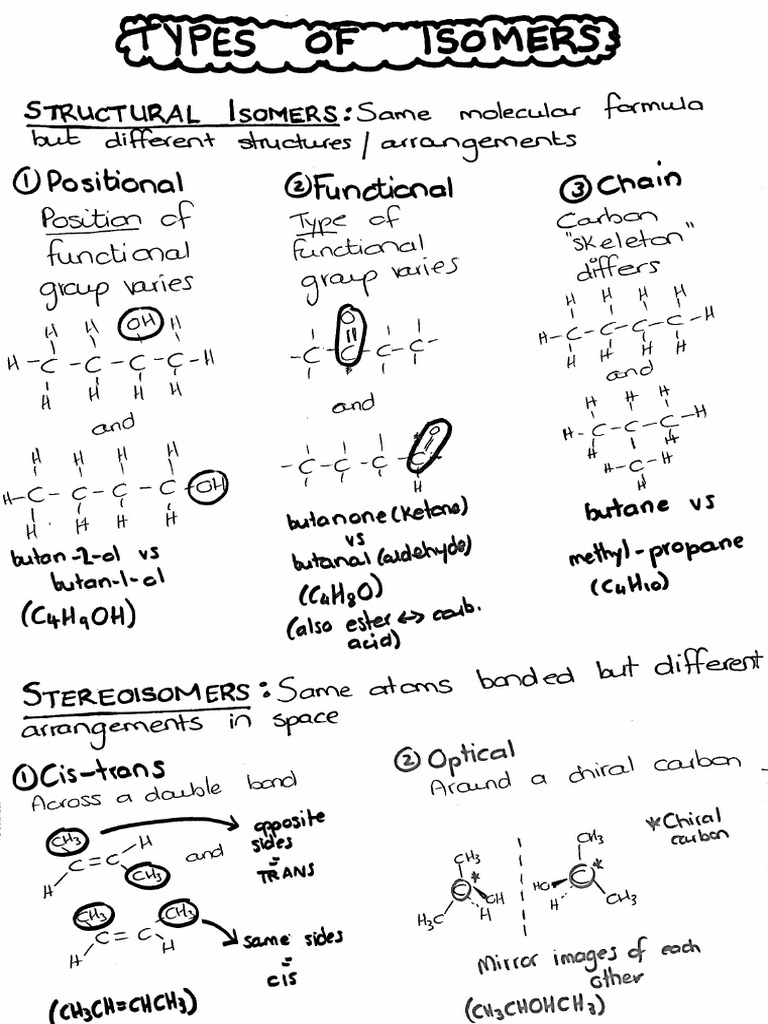 TYPES OF ISOMERS
STRUCTURAL ISOMERS: Same molecular formula
but different structures/arrangements
① Positional
Position of
functional
group varies
H H OH H
H-C-C-C-C-H
H H H H
and
H H H H
H-C-C-C-C-OH
H H H H
butan-2-ol vs
butan-1-ol
(C4H9OH)
② Functional
Type of
functional
group varies
O
-C-C-C-C-
and
O
-C-C-C-C
H
butanone (Ketone)
vs
butanal (aldehyde)
(C4H8O)
(also ester ↔ carb.
acid)
③ Chain
Carbon
"skeleton"
differs
H H H H
H-C-C-C-C-H
H H H H
and
H H H
H-C-C-C-H
H H
H-C-H
H
butane vs
methyl-propane
(C4H10)
STEREOISOMERS: Same atoms bonded but different
arrangements in space
① Cis-trans
Across a double bond
CH3 H
C=C
H CH3
and
opposite
sides
=
TRANS
CH3 CH3
C=C
H H
same sides
=
cis
(CH3CH=CHCH3)
② Optical
Around a chiral carbon
*Chiral
carbon
CH3
C*
H3C H OH
CH3
C*
HO H CH3
Mirror images of each
other
(CH3CHOHCH3)